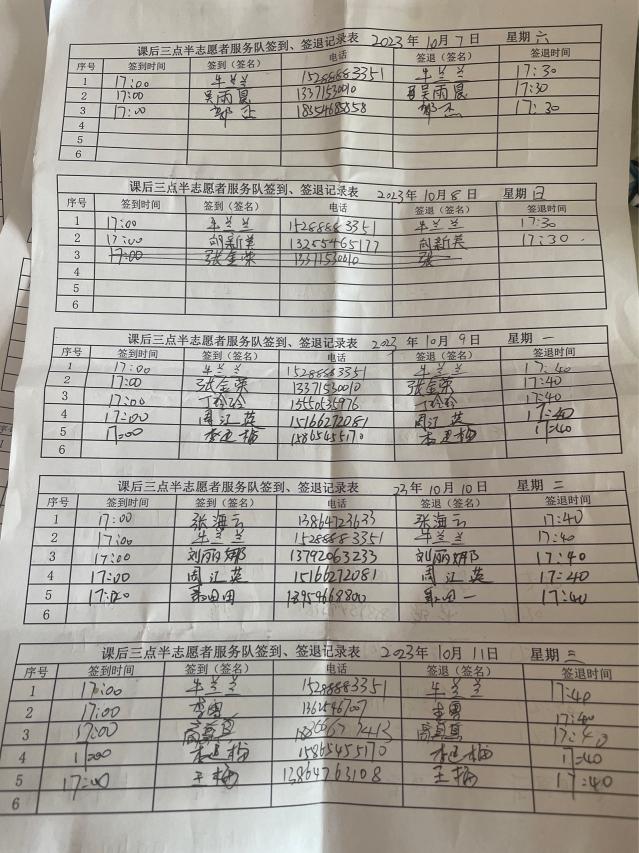 课后三点半志愿者服务队签到、签退记录表 2023年10月7日 星期六
序号 签到时间 签到（签名） 电话 签退（签名） 签退时间
1 17:00 牛兰兰 15288883351 牛兰兰 17:30
2 17:00 吴雨晨 13371530010 吴雨晨 17:30
3 17:00 郭杰 18554685858 郭杰 17:30
4
5
6
课后三点半志愿者服务队签到、签退记录表 2023年10月8日 星期日
序号 签到时间 签到（签名） 电话 签退（签名） 签退时间
1 17:00 牛兰兰 15288883351 牛兰兰 17:30
2 17:00 胡新英 13255465177 胡新英 17:30
3 17:00 张金荣 13371530010 张
4
5
6
课后三点半志愿者服务队签到、签退记录表 2023年10月9日 星期一
序号 签到时间 签到（签名） 电话 签退（签名） 签退时间
1 17:00 牛兰兰 15288883351 牛兰兰 17:40
2 17:00 张金荣 13371530010 张金荣 17:40
3 17:00 丁玲玲 丁玲玲 17:40
4 17:00 周江英 15166272081 周江英 17:40
5 17:00 李迎梅 15865455170 李迎梅 17:40
6
课后三点半志愿者服务队签到、签退记录表 23年10月10日 星期二
序号 签到时间 签到（签名） 电话 签退（签名） 签退时间
1 17:00 张海云 13864723633 张海云 17:40
2 17:00 牛兰兰 15288883351 牛兰兰 17:40
3 17:00 刘丽娜 13792063233 刘丽娜 17:40
4 17:00 周江英 15166272081 周江英 17:40
5 17:00 17:40
6
课后三点半志愿者服务队签到、签退记录表 2023年10月11日 星期三
序号 签到时间 签到（签名） 电话 签退（签名） 签退时间
1 17:00 牛兰兰 15288883351 牛兰兰 17:40
2 17:00 13625467007 17:40
3 17:00 17:40
4 17:00 李迎梅 15865455170 李迎梅 17:40
5 17:00 王梅 13864763108 王梅 17:40
6